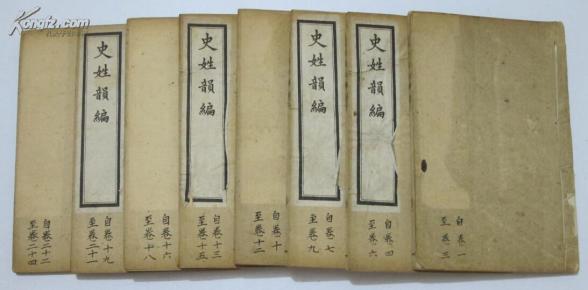 Kongfz.com
自卷一
至卷三
史姓韻編
自卷四
至卷六
史姓韻編
自卷七
至卷九
自卷十
至卷十二
史姓韻編
自卷十三
至卷十五
自卷十六
至卷十八
史姓韻編
自卷十九
至卷二十一
自卷二十二
至卷二十四